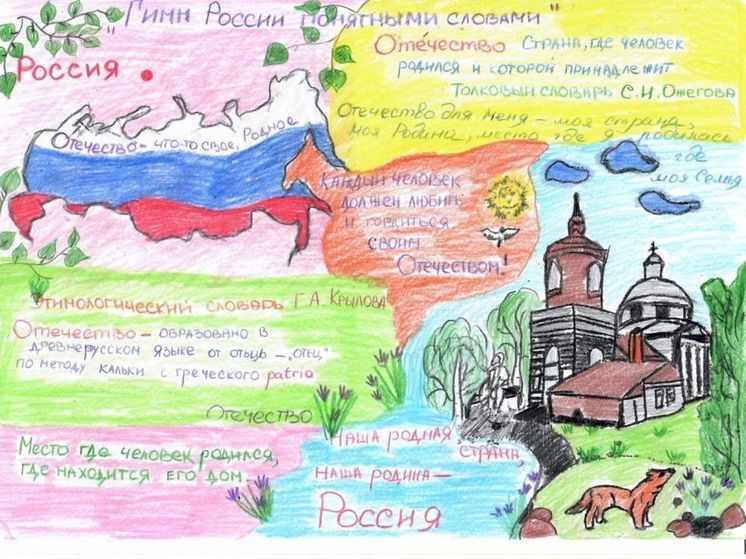 „Гимн России понятными словами"
Россия.
Отечество - что-то свое, родное
Отечество Страна, где человек
родился и которой принадлежит
Толковый словарь С.И. Ожегова
Отечество для меня - моя страна,
моя Родина, место где я родилась
где
моя семья
Каждый человек
должен любить
и гордиться
своим
Отечеством!
Этимологический словарь Г.А. Крылова
Отечество - образовано в
древнерусском языке от отьць - „отец"
по методу кальки с греческого patria
Отечество
Место где человек родился,
где находится его дом.
Наша родная
страна,
наша родина -
Россия